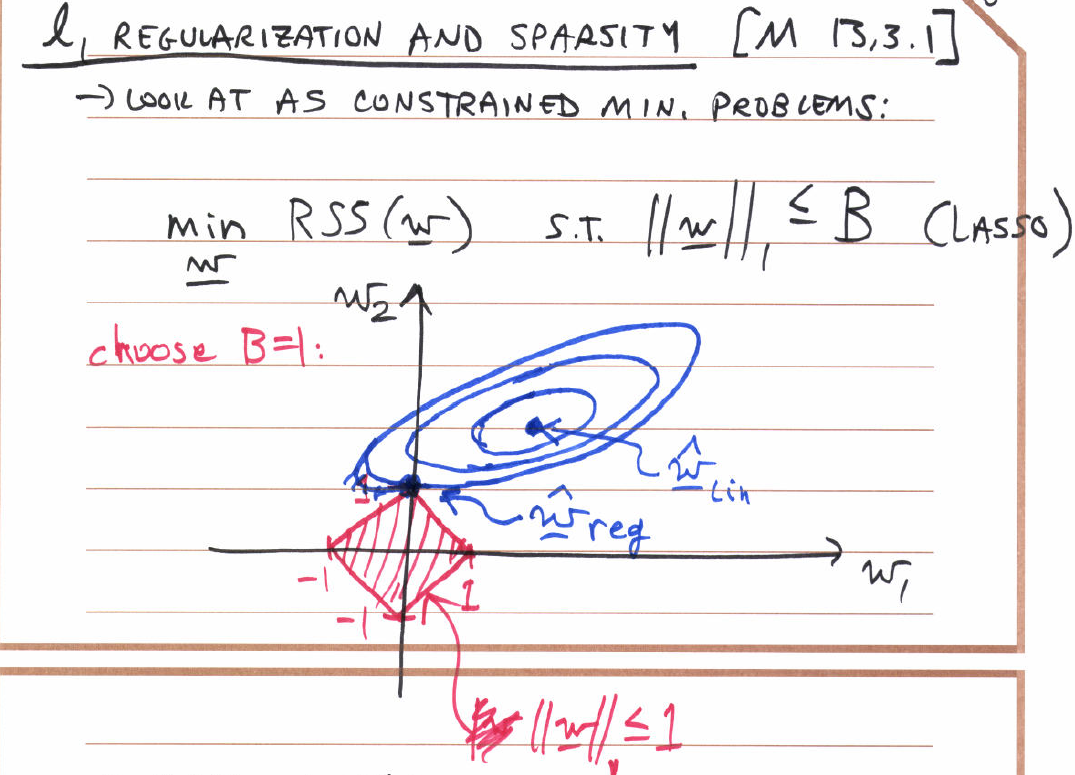 l₁ REGULARIZATION AND SPARSITY [M 13,3.1]
→ LOOK AT AS CONSTRAINED MIN. PROBLEMS:
min RSS(w) S.T. ||w||₁ ≤ B (LASSO)
w
w₂
choose B=1:
ŵ lin
1
ŵ reg
-1
1
w₁
-1
||w||₁ ≤ 1